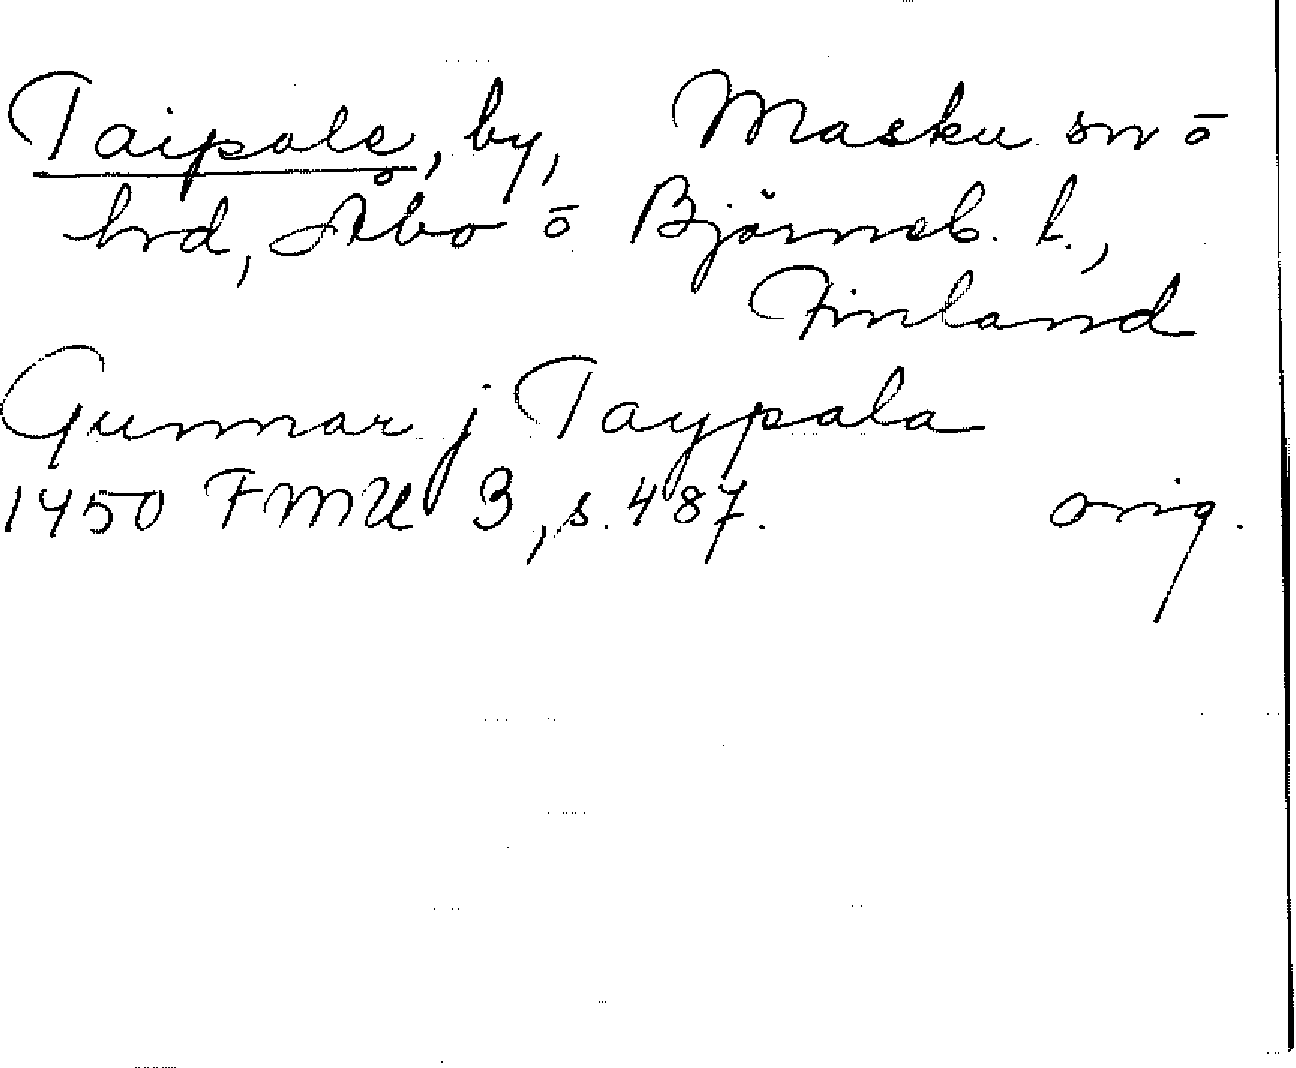 Taipale, by, Masku sn o
hrd, Åbo o Björneb. l.,
Finland
Gunnar j Taypala
1450 FMU 3, s. 487. orig.